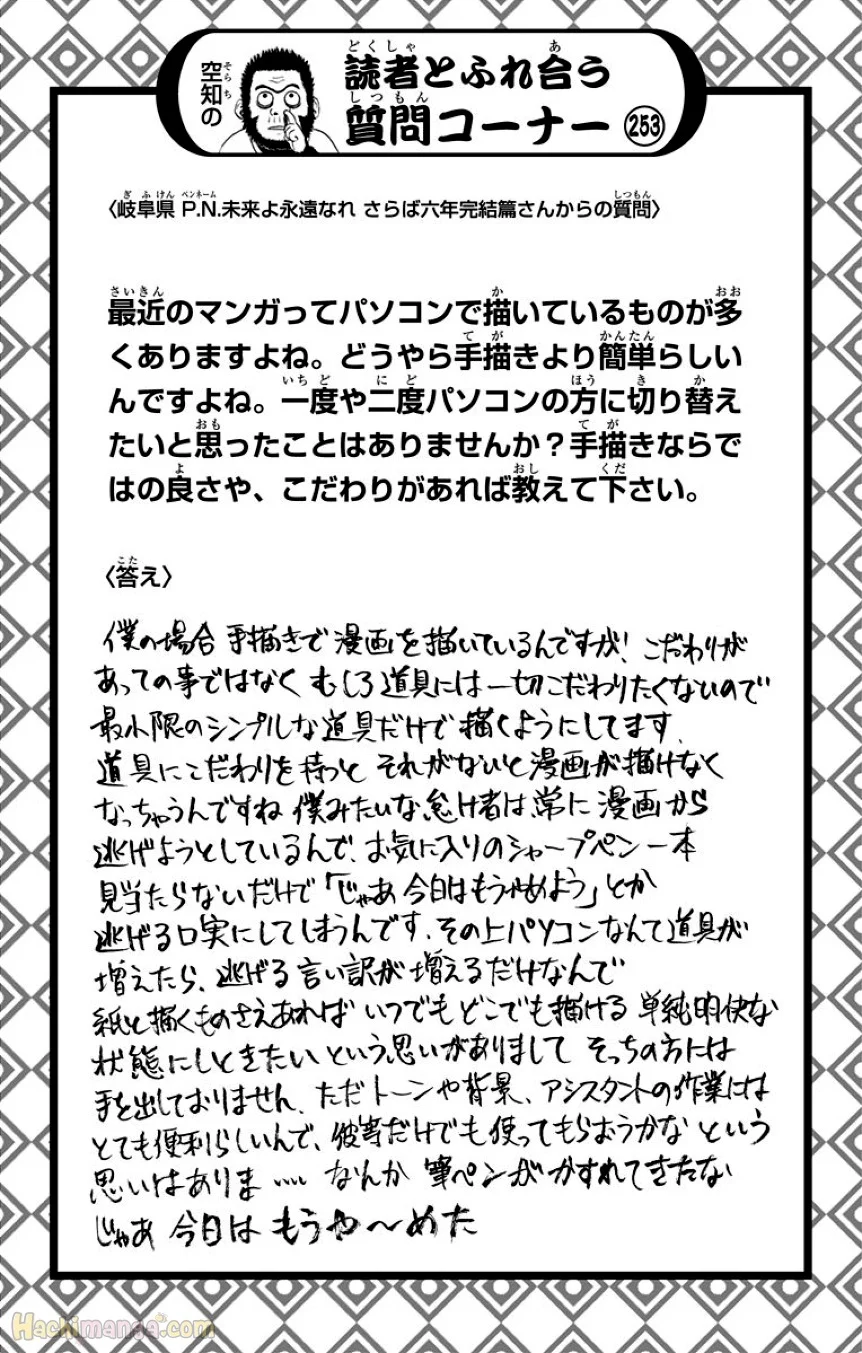 空知の
読者とふれ合う
質問コーナー 253
〈岐阜県 P.N.未来よ永遠なれ さらば六年完結篇さんからの質問〉
最近のマンガってパソコンで描いているものが多
くありますよね。どうやら手描きより簡単らしい
んですよね。一度や二度パソコンの方に切り替え
たいと思ったことはありませんか？手描きならで
はの良さや、こだわりがあれば教えて下さい。
〈答え〉
僕の場合 手描きで漫画を描いているんですが！こだわりが
あっての事ではなく むしろ道具には一切こだわりたくないので
最小限のシンプルな道具だけで描くようにしてます.
道具にこだわりを持つと それがないと漫画が描けなく
なっちゃうんですね 僕みたいな怠け者は、常に漫画から
逃げようとしているんで、お気に入りのシャープペン一本
見当たらないだけで「じゃあ今日はもうやめよう」とか
逃げる口実にしてしまうんです. その上パソコンなんて道具が
増えたら、逃げる言い訳が増えるだけなんで
紙と描くものさえあれば いつでもどこでも描ける 単純明快な
状態にしときたいという思いがありまして そっちの方には
手を出しておりません. ただトーンや背景、アシスタントの作業には
とても便利らしいんで、彼等だけでも使ってもらおうかな という
思いはありま…… なんか 筆ペンがかすれてきたな
じゃあ 今日は もうや〜めた
Hachimanga.com